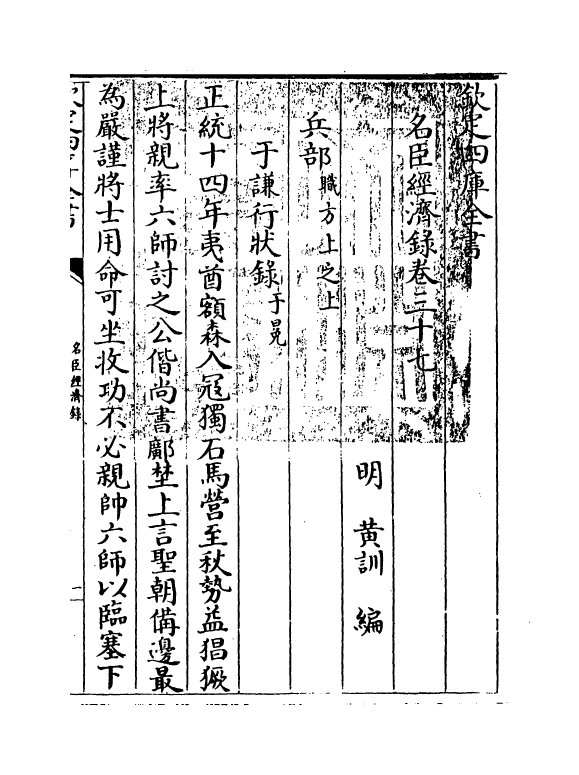 欽定四庫全書
名臣經濟錄卷三十七
明 黃訓 編
兵部職方上之上
于謙行狀錄于冕
正統十四年夷酋額森入冦獨石馬營至秋勢益猖獗
上將親率六師討之公偕尚書鄺埜上言聖朝備邊最
為嚴謹將士用命可坐收功不必親帥六師以臨塞下
欽定四庫全書
名臣經濟錄
一